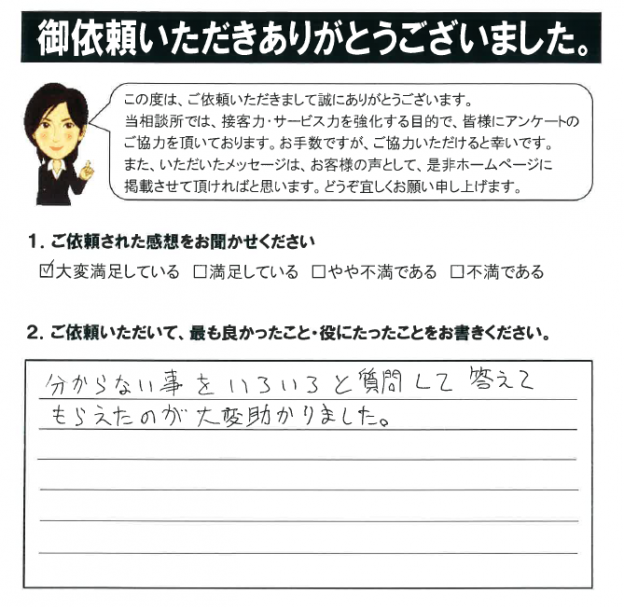 御依頼いただきありがとうございました。
この度は、ご依頼いただきまして誠にありがとうございます。
当相談所では、接客力・サービス力を強化する目的で、皆様にアンケートの
ご協力を頂いております。お手数ですが、ご協力いただけると幸いです。
また、いただいたメッセージは、お客様の声として、是非ホームページに
掲載させて頂ければと思います。どうぞ宜しくお願い申し上げます。
1. ご依頼された感想をお聞かせください
☑大変満足している □満足している □やや不満である □不満である
2. ご依頼いただいて、最も良かったこと・役にたったことをお書きください。
分からない事をいろいろと質問して答えて
もらえたのが大変助かりました。